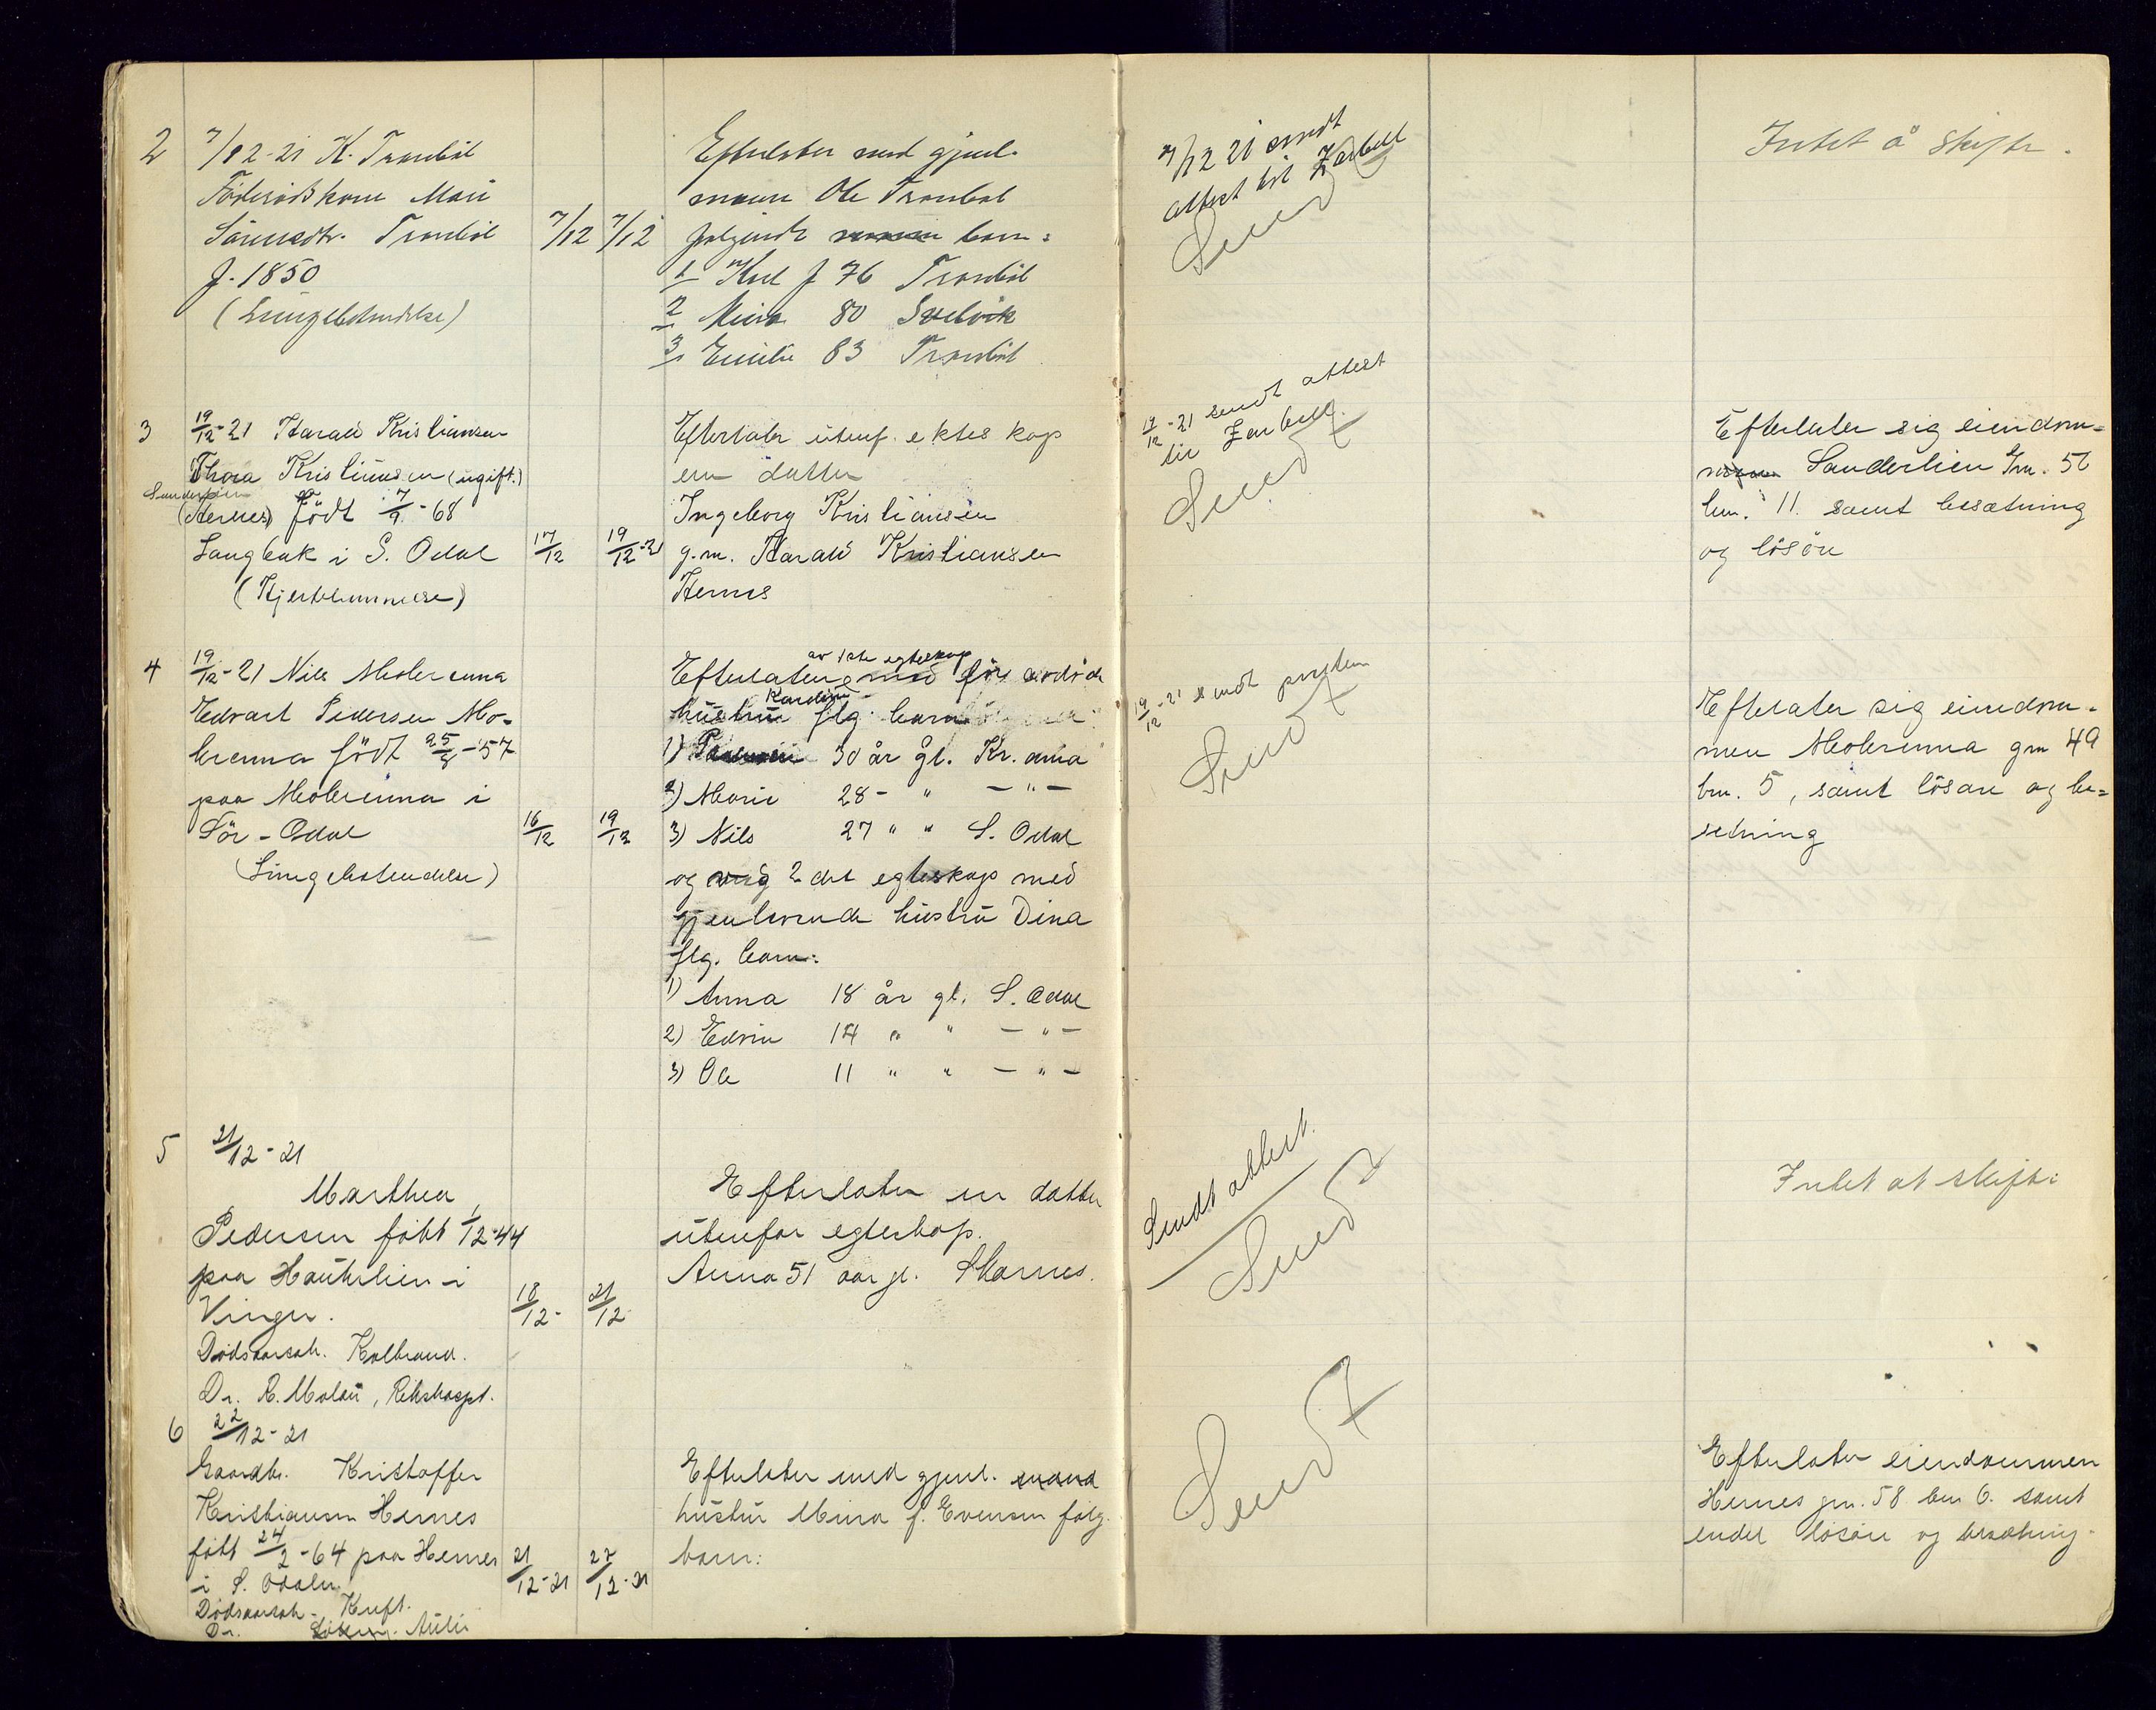 2
7/12-21 K. Trandböl
Föderådskone Mari
Sörensdtr. Trandböl
f. 1850
(Lungebetændelse)
7/12 7/12
Efterlater med gjenl.
mann Ole Trandböl
følgende barn:
1 Karl f 76 Trandböl
2 Mina 80 Svelvik
3 Emilie 83 Trandböl
7/12 21 sendt
attest til Zarbell
Send
Intet å skifte.
3
19/12-21 Harald Kristiansen
Thora Kristiansen (ugift.)
Sanderlien
(Hernes) födt 7/9-68
Langbak i S. Odal
(Hjertelammelse)
17/12
19/12-21
Efterlater utenf. ektes kap
en datter
Ingeborg Kristiansen
g.m. Harald Kristiansen
Hernes
19/12-21 sendt attest
til Zarbell.
Send
Efterlater sig eiendom-
men Sanderlien Gn. 58
bn. 11. samt besætning
og lösöre
4
19/12-21 Nils Mobrenna
Edvart Pedersen Mo-
brenna födt 25/8-57
paa Mobrenna i
Sör-Odal
(Lungebetendelse)
16/12
19/12
av 1ste egteskap
Efterlater med för avdöde
Karoline
hustru flg. barn
1) 30 år gl. Kr.ania
2) Marie 28 - " - " -
3) Nils 27 " " S. Odal
og 2det egteskap med
gjenlevende hustru Dina
flg. barn:
1) Anna 18 år gl. S. Odal
2) Edvin 14 " " - " -
3) Ole 11 " " - " -
19/12-21 sendt presten
Send
Efterlater sig eiendom-
men Mobrenna gn 49
bn. 5, samt lösöre og be-
setning
5
21/12-21
Marthea
Pedersen født 1/12-44
paa Haukelien i
Vinger.
Dødsaarsak. Kolbrand.
Dr. R. Malau, Rikshospt.
18/12-
21/12-
Efterlater en datter
utenfor egteskap.
Anna 51 aar gl. Skarnes.
Sendt attest.
Send
Intet at skifte
6
22/12-21
Gaardbr. Kristoffer
Kristiansen Hernes
født 24/2-64 paa Hernes
i S. Odalen
Dødsaarsak- Kreft.
Dr. Aulie
21/12-21
22/12-21
Efterlater med gjenl.
hustru Mina f. Evensen følg.
barn:
Send
Efterlater eiendommen
Hernes gn. 58 bn 6. samt
endel løsøre og besætning.